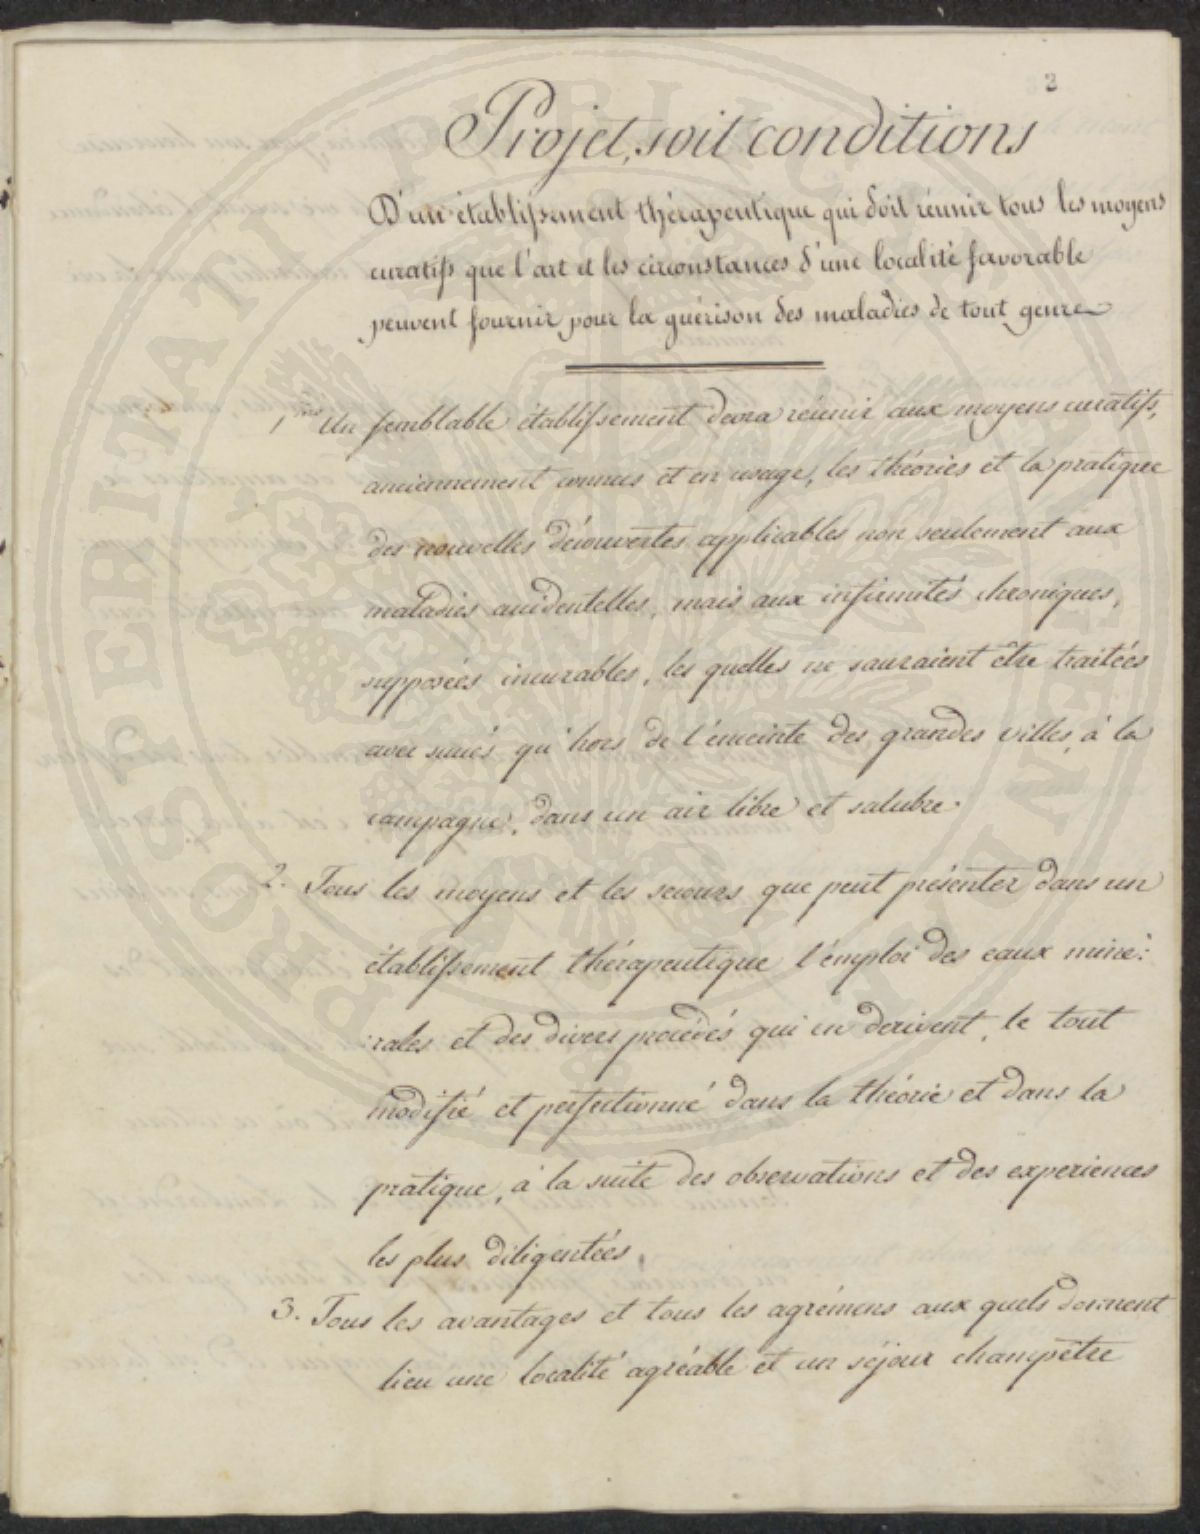 2
Projet, soit conditions
D'un établissement thérapeutique qui doit réunir tous les moyens
curatifs que l'art et les circonstances d'une localité favorable
peuvent fournir pour la guérison des maladies de tout genre
1.mo Un semblable établissement devra réunir aux moyens curatifs,
anciennement connus et en usage, les théories et la pratique
des nouvelles découvertes applicables non seulement aux
maladies accidentelles, mais aux infirmités chroniques,
supposées incurables, les quelles ne sauraient être traitées
avec succès qu'hors de l'enceinte des grandes villes, à la
campagne, dans un air libre et salubre.
2. Tous les moyens et les secours que peut présenter dans un
établissement thérapeutique l'emploi des eaux miné:
:rales et des divers procédés qui en derivent, le tout
modifié et perfectionné dans la théorie et dans la
pratique, à la suite des observations et des experiences
les plus diligentées.
3. Tous les avantages et tous les agrémens aux quels donnent
lieu une localité agréable et un séjour champêtre
PROSPERITATI PUBLICAE AUGENDAE